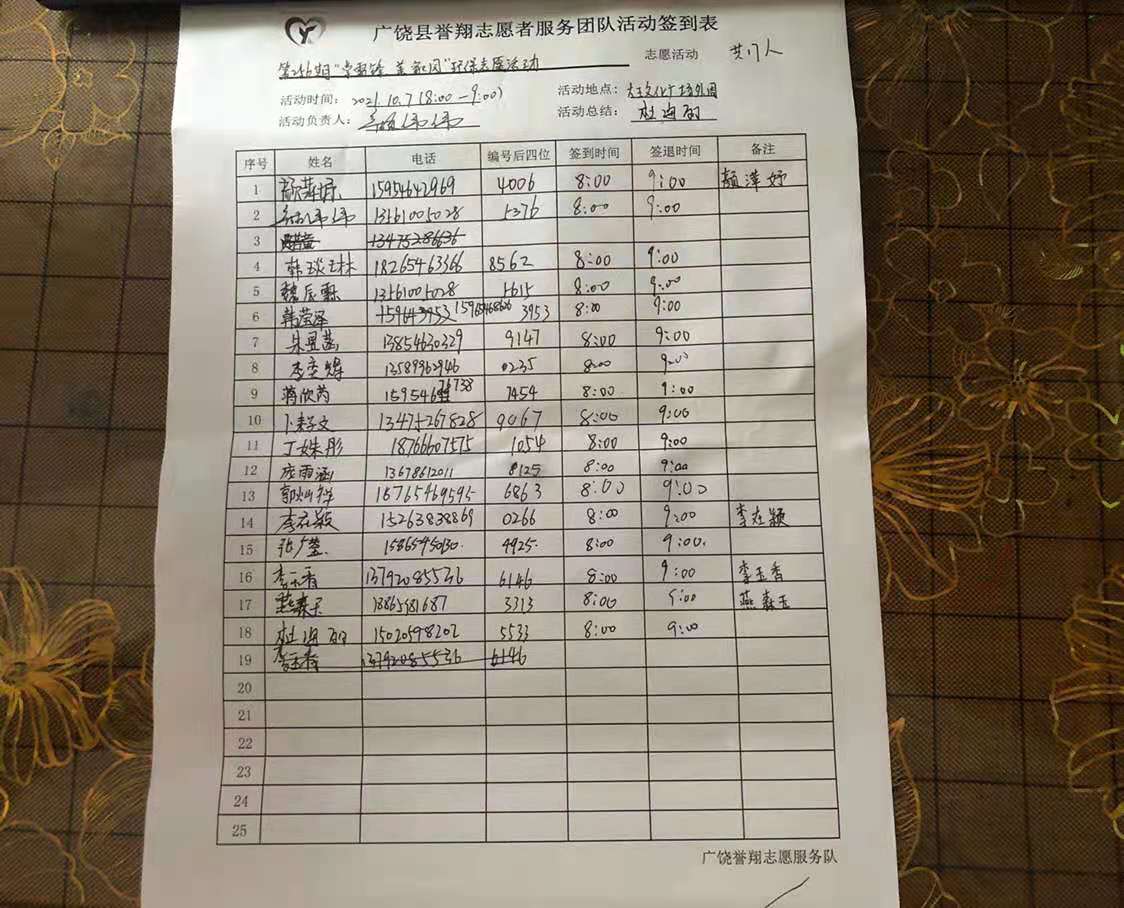 广饶县誉翔志愿者服务团队活动签到表
第256期"学雷锋 美家园"环保志愿活动 志愿活动 共17人
活动时间: 2021.10.7(8:00-9:00) 活动地点:
活动负责人: 活动总结: 杜海丽
序号 姓名 电话 编号后四位 签到时间 签退时间 备注
1 15954642969 4006 8:00 9:00 颜萍妤
2 13561005028 5376 8:00 9:00
3 13475286636
4 韩琰琳 18265463366 8562 8:00 9:00
5 魏辰霖 13561005028 5615 8:00 9:00
6 韩莹泽 159643953 15965468626 3953 8:00 9:00
7 朱昱菡 13854630329 9147 8:00 9:00
8 李奕锦 13589962946 0235 8:00 9:00
9 蒋欣芮 15954676738 7454 8:00 9:00
10 卜子文 13475267828 9067 8:00 9:00
11 丁姝彤 18766607575 1054 8:00 9:00
12 雨涵 13678612011 8125 8:00 9:00
13 郭灿祥 15765469595 6863 8:00 9:00
14 李在颖 15263838869 0266 8:00 9:00 李在颖
15 张广莹 15865950130 4925 8:00 9:00
16 李玉香 13792085536 6146 8:00 9:00 李玉香
17 燕森玉 18865981687 3313 8:00 9:00 燕森玉
18 杜海丽 15020598202 5533 8:00 9:00
19 李玉香 13792085536 6146
20
21
22
23
24
25
广饶誉翔志愿服务队